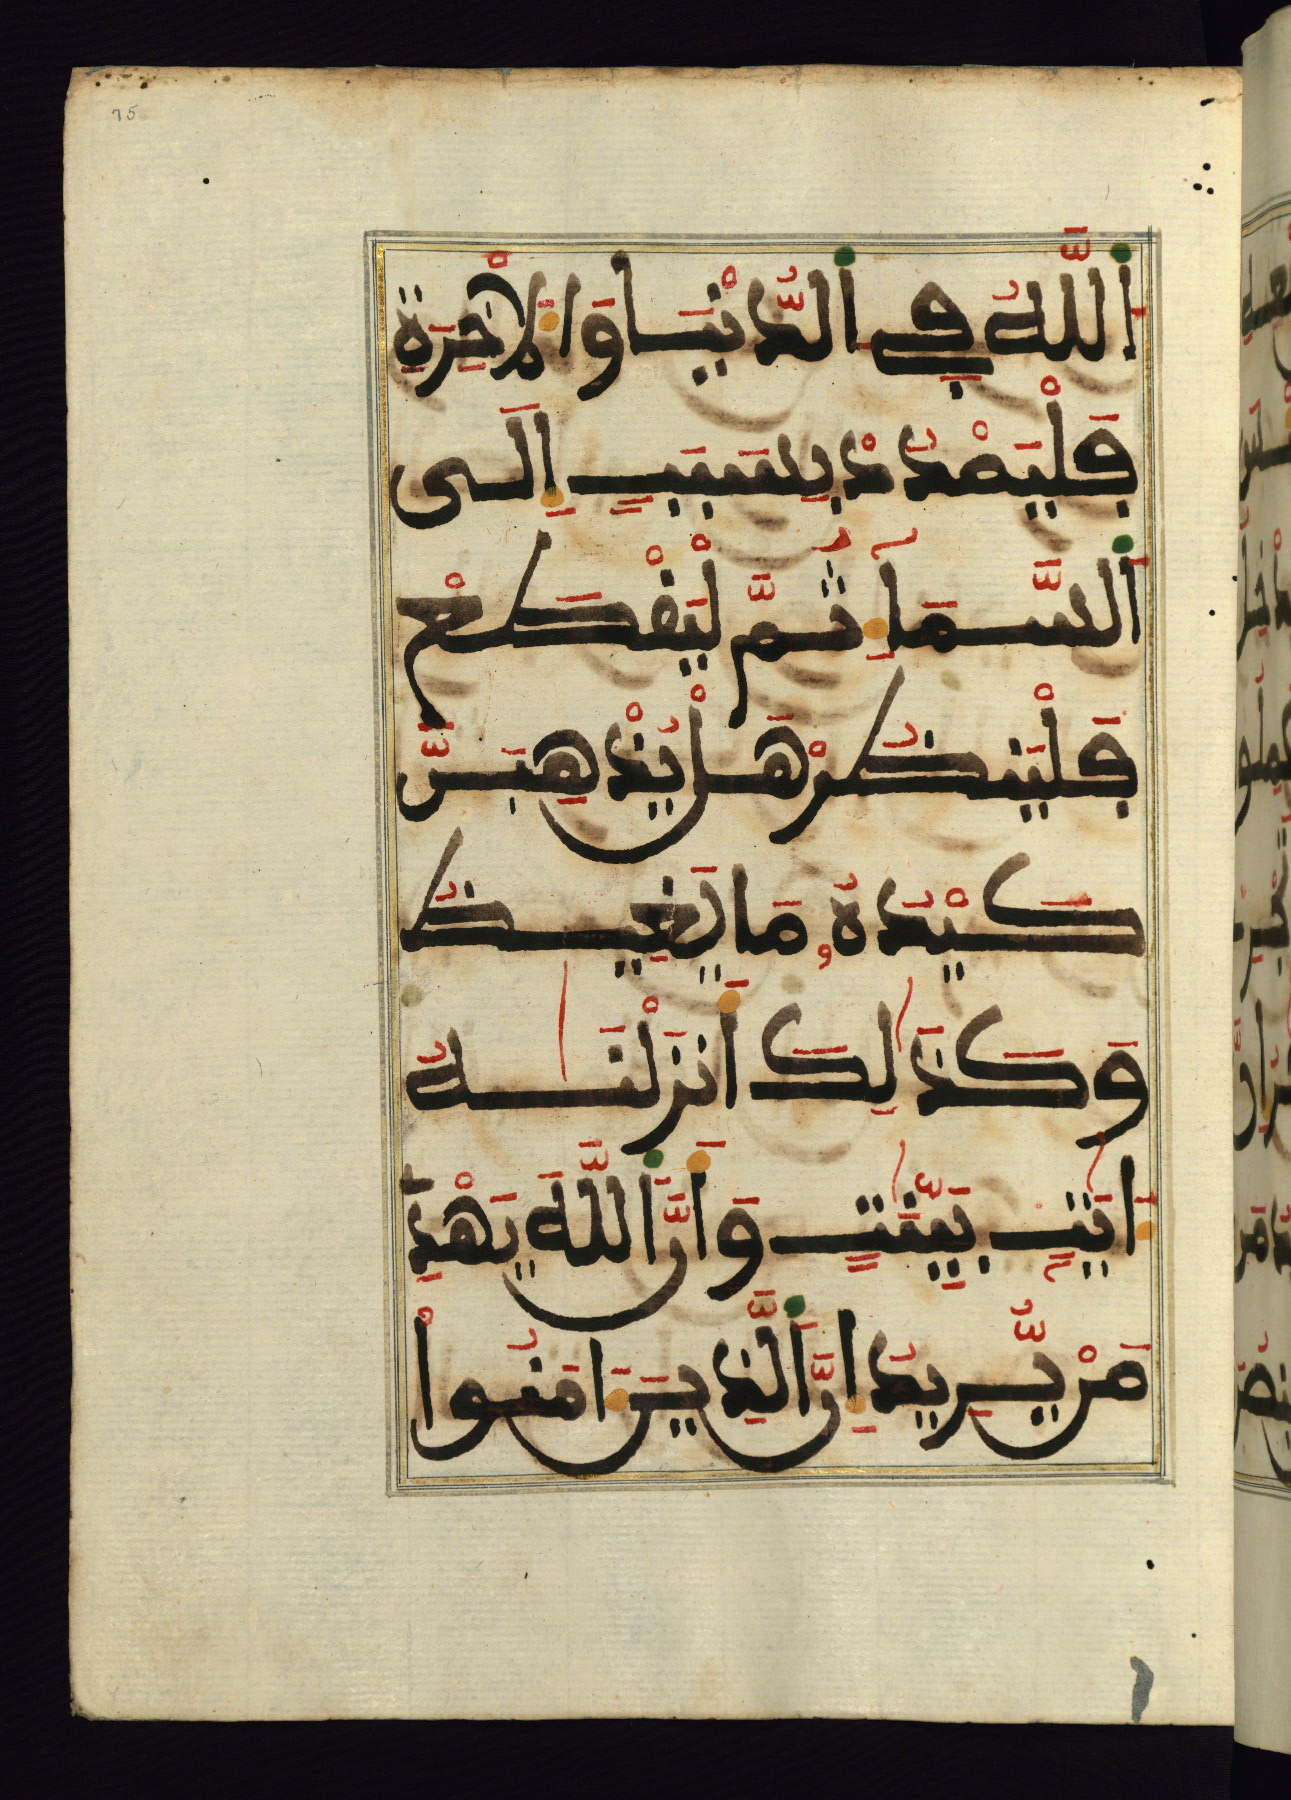 75
اَللَّهُ فِي اِلدُّنْيَا وَالْأَخِرَةِ
فَلْيَمْدُدْ بِسَبَبٍ إِلَى
اَلسَّمَآءِ ثُمَّ لْيَقْطَعْ
فَلْيَنظُرْ هَلْ يُذْهِبَنَّ
كَيْدُهُ مَا يَغِيظُ
وَكَذَٰلِكَ أَنزَلْنَٰهُ
ءَايَٰتٍ بَيِّنَٰتٍ وَأَنَّ اَللَّهَ يَهْدِے
مَنْ يُّرِيدُ إِنَّ اَلَّذِينَ ءَامَنُواْ